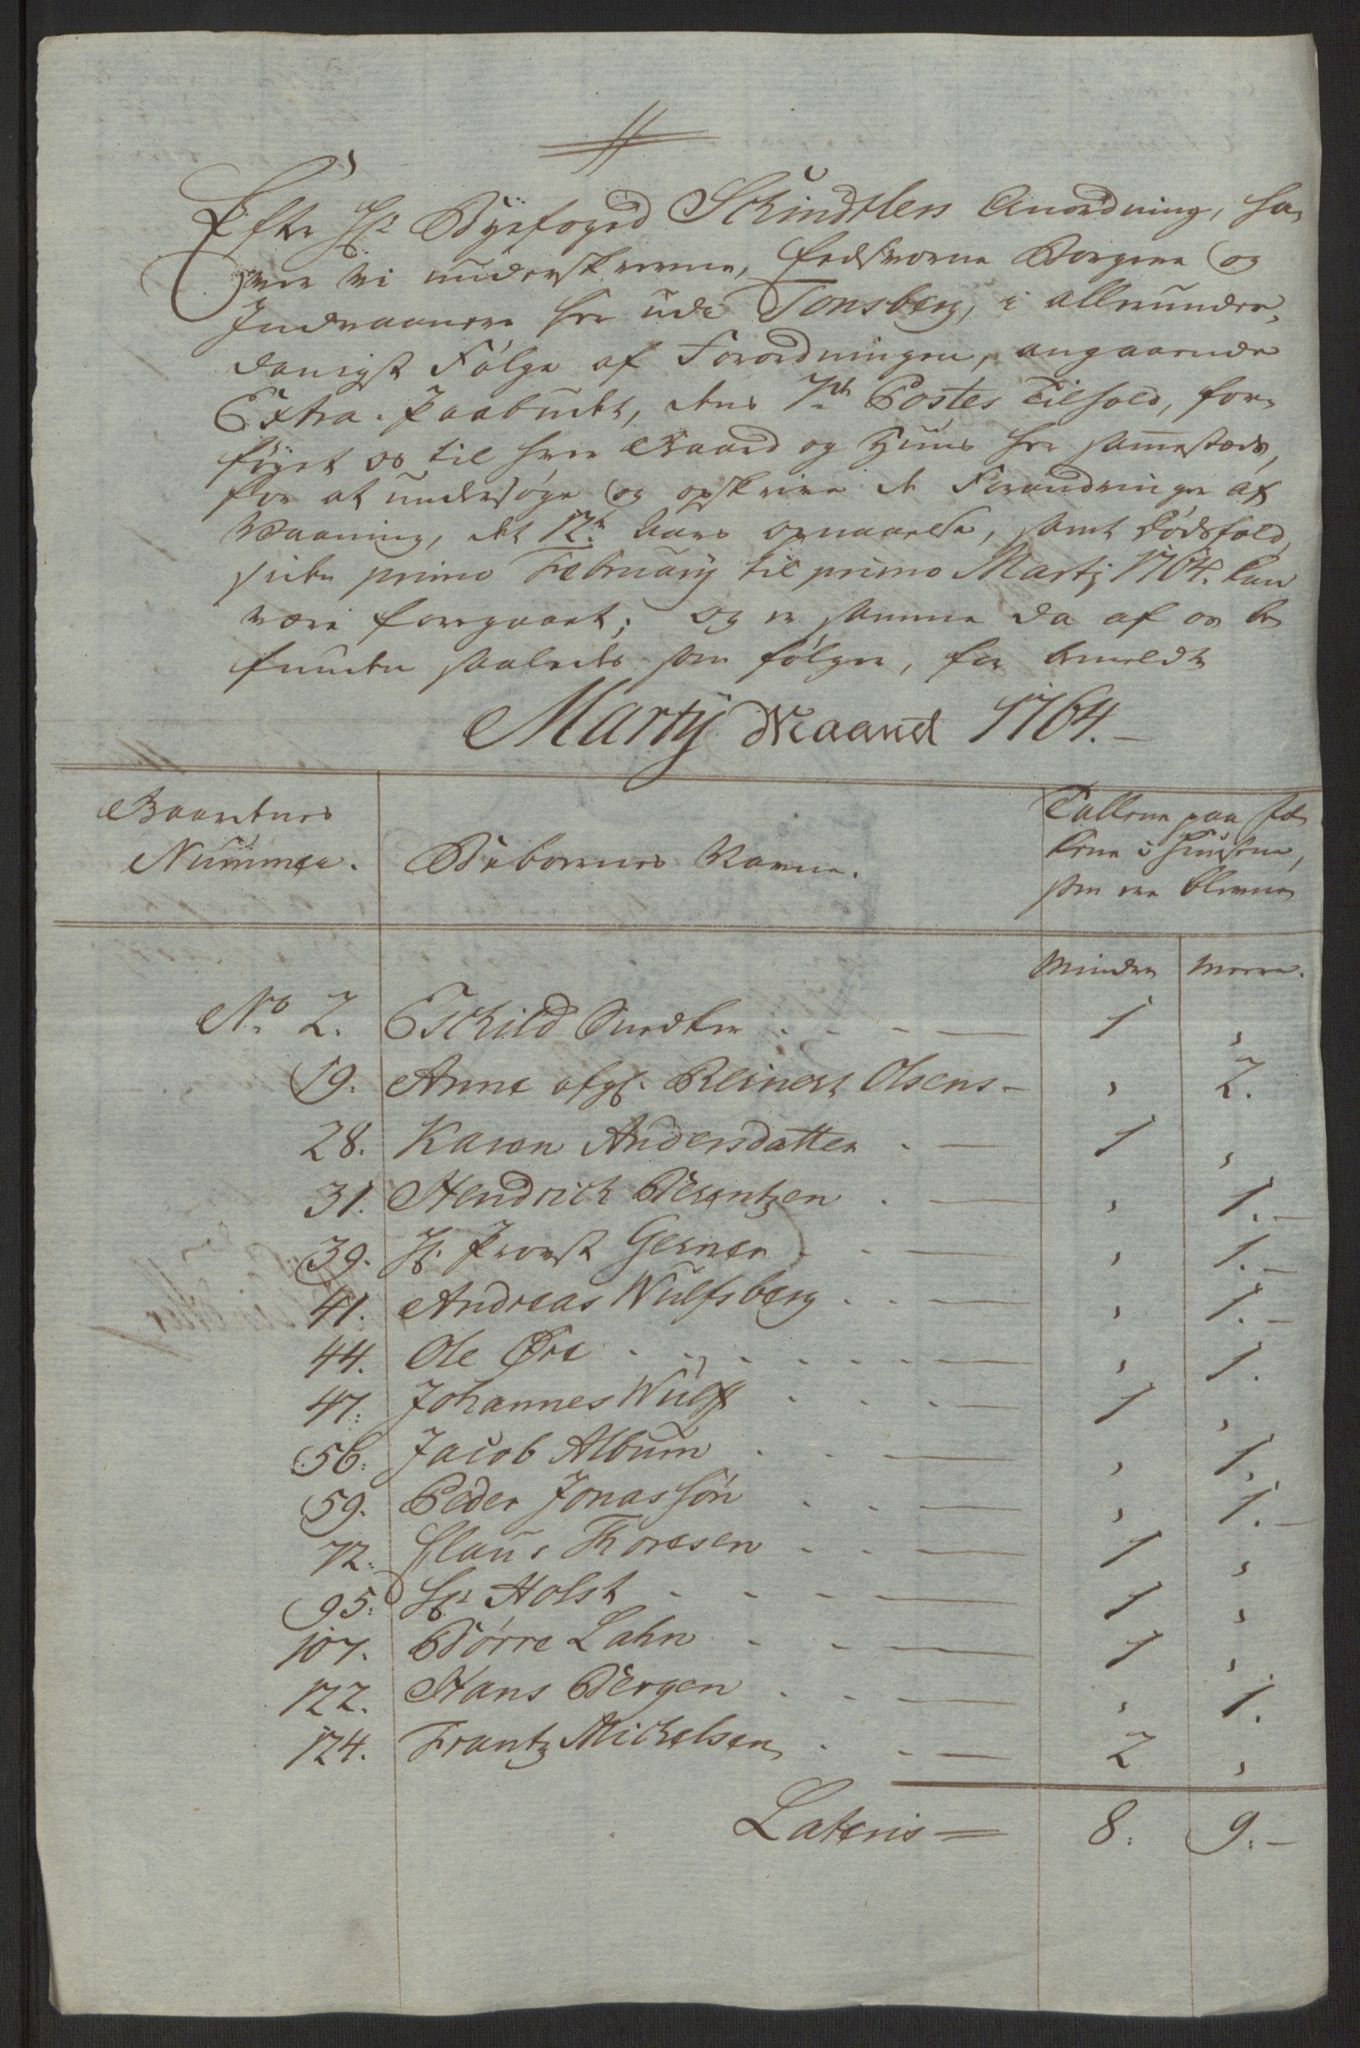 Efter Hr Byefoged Schindtlers Anordning, ha,,
ver vi underskrevne, Eedsvorne Borgere og
Indvaanere her udi Tonsberg, i allerunder,,
danigst Følge af Forordningen, angaaende
Extra-Paabudet, dens 7de Postes Tilhold, for,,
føyet os til hver Gaard og Huus her sammesteds,
for at undersøge og opskrive de Forandringer af
Vaaning, det 12te Aars opnaaelse, samt Dødsfald,
siden primo February til primo Martj 1764. kan
være foregaaet; og er samme da af os be
funden saaledes som følger, for bemeldte
Martij Maaned 1764.
Gaardenes Nummer.
Beboernes Navne.
Tallene paa Fol
kene i Huusene,
som ere blevne
Mindre Meere.
No 2. Eschild Suedker 1 "
19. Anne afg. Reinert Olsens " 2.
28. Karen Andersdatter 1 "
31. Hendrich Berentzen " 1.
39. Hr. Provst Gerner " 1.
41. Andreas Wulfsberg " 1.
44. Ole Øre " 1.
47. Johannes Wulf 1 "
56. Jacob Album " 1.
59. Peder Jonassøn " 1.
72. Claus Thoresen 1 "
95. Hr Holst 1 "
107. Børre Lahn 1 "
122. Hans Bergen " 1.
124. Frantz Michelsen 2 "
Lateris 8. 9.